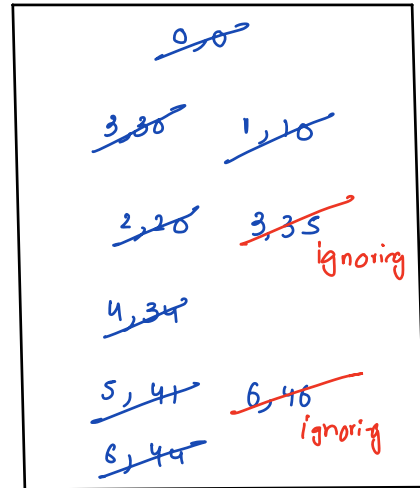 0,0
3,30 1,10
2,20 3,35
ignoring
4,34
5, 41 6, 46
ignorig
6, 44